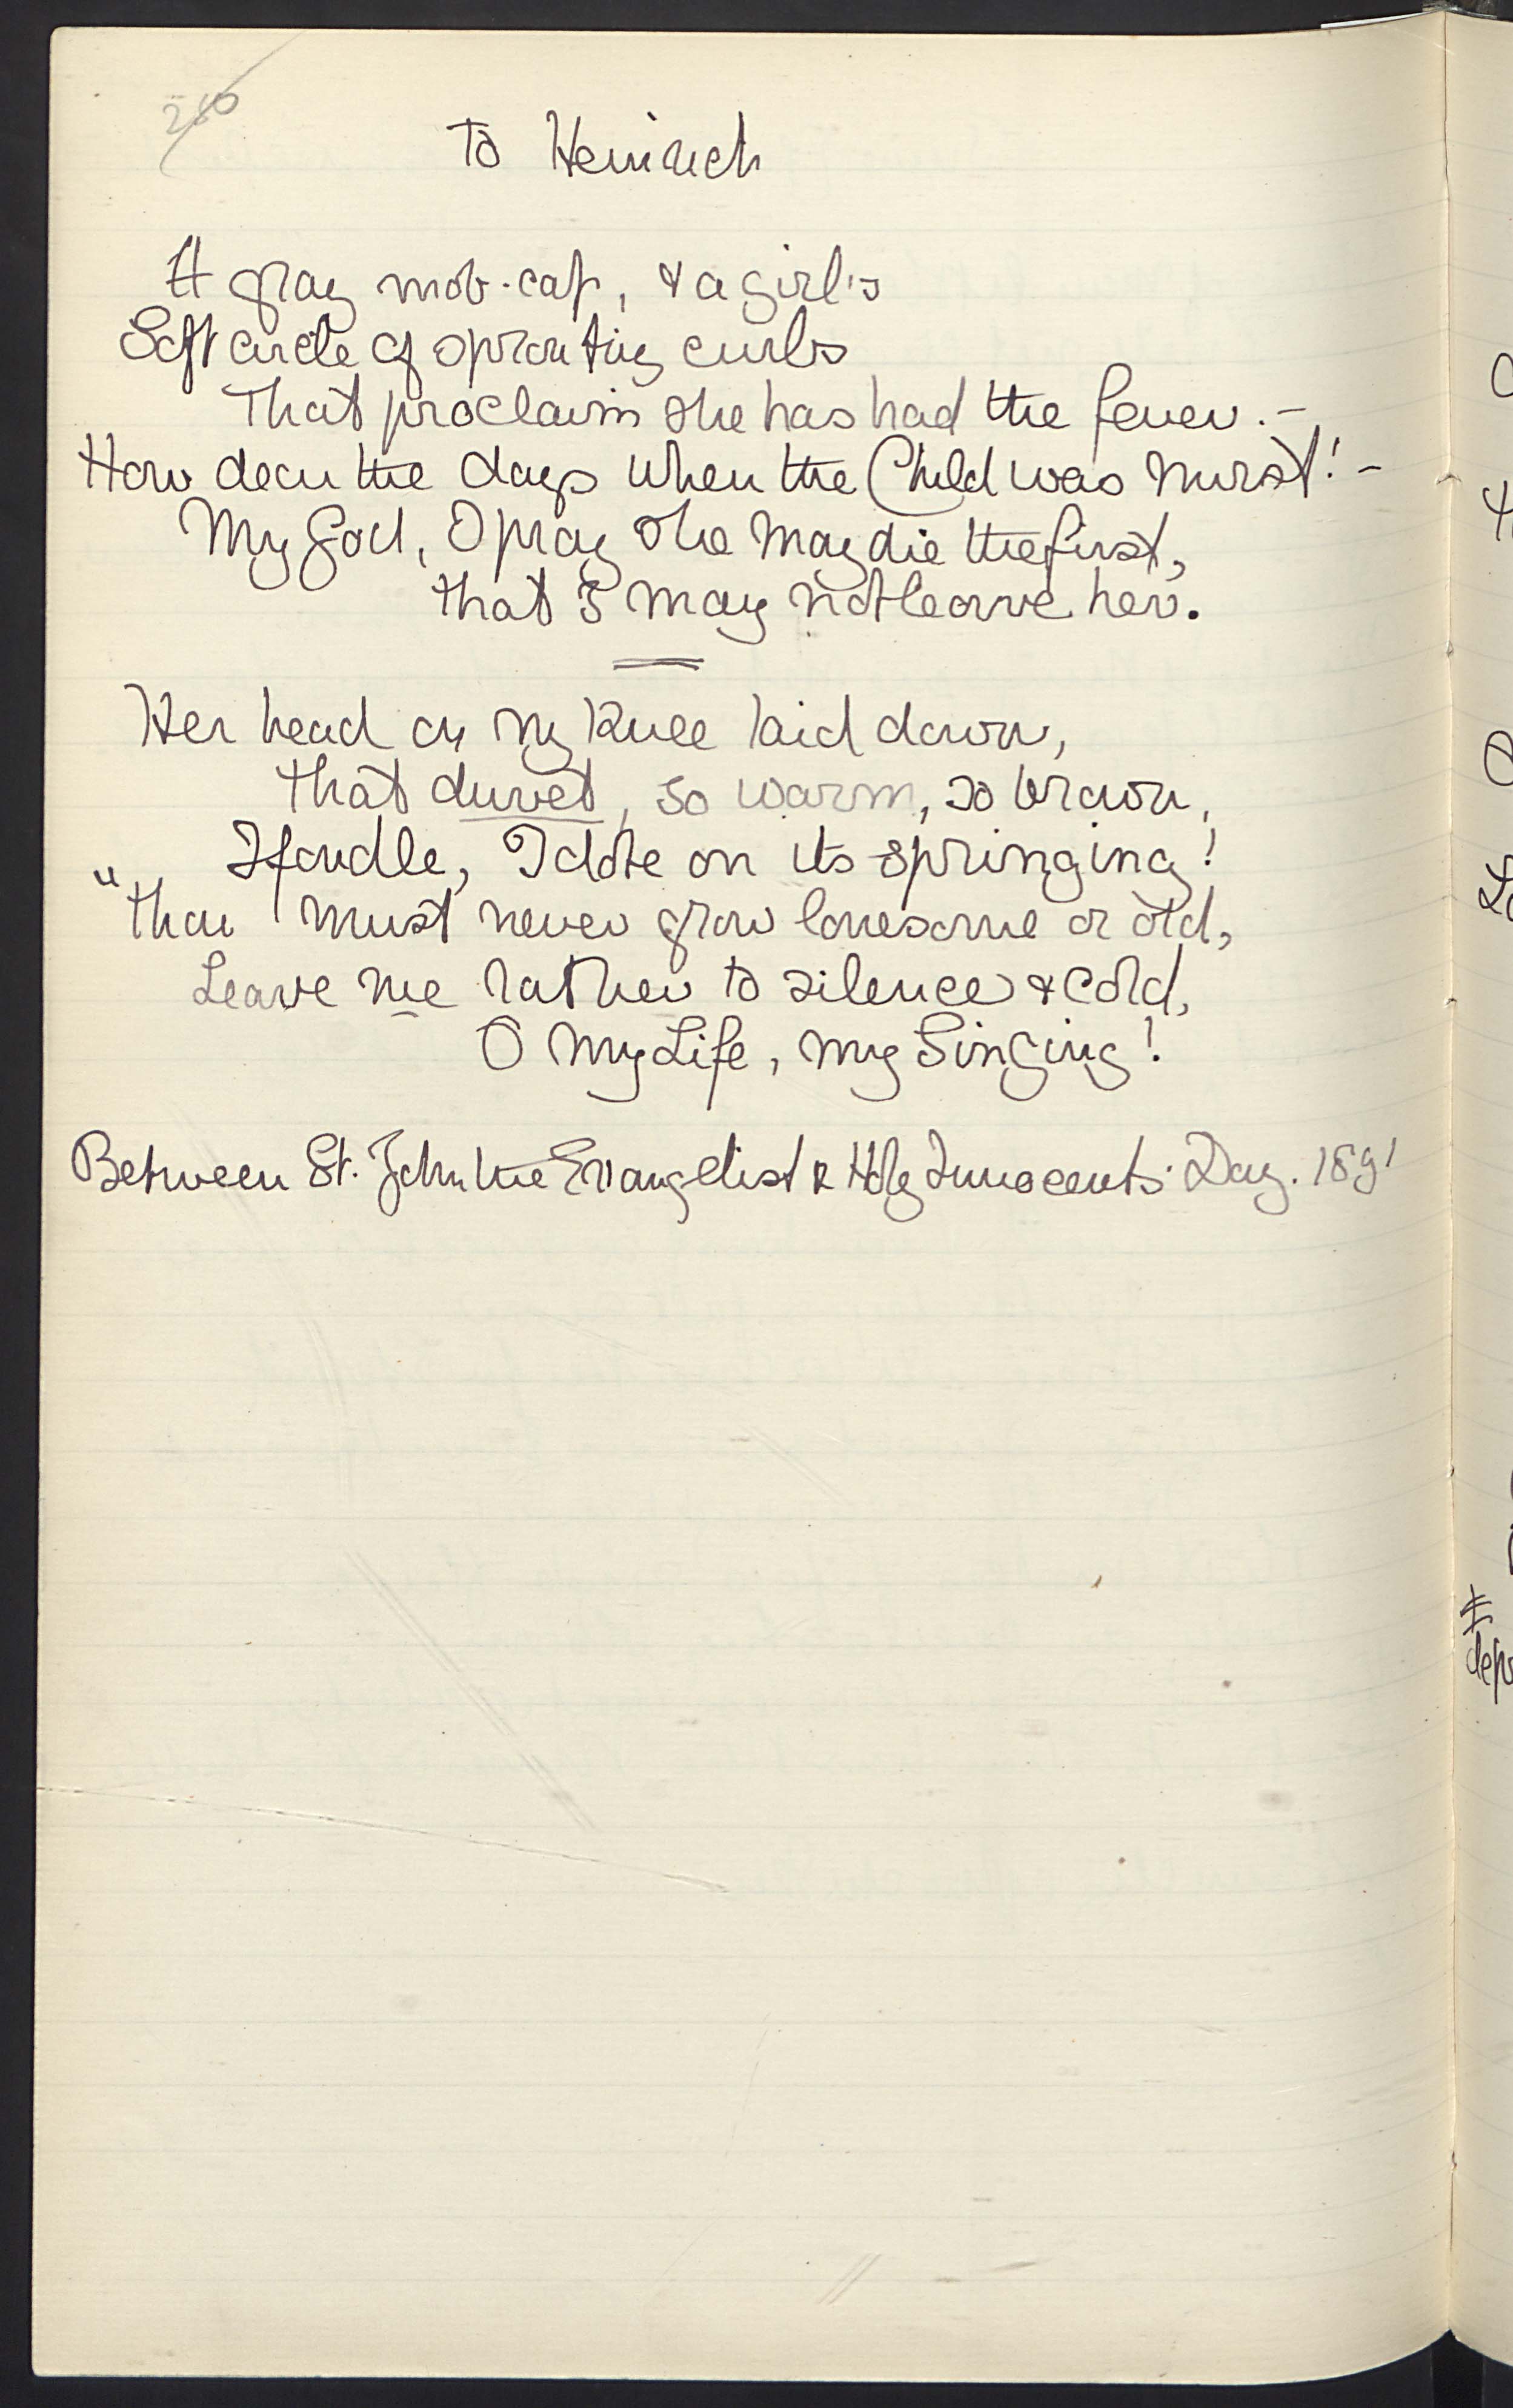 260
To Heinrich
A gray mob-cap, & a girl's
Soft circle of sprouting curls
That proclaim she has had the fever. –
How dear the days when the Child was nurst! –
My God, I pray she may die the first,
That I may not leave her.
Her head on my knee laid down,
That duvet, so warm, so brown,
I fondle, I dote on its springing!
"Thou must never grow lonesome or old,
Leave me rather to silence & cold,
O my Life, my Singing!
Between St. John the Evangelist & Holy Innocents' Day. 1891